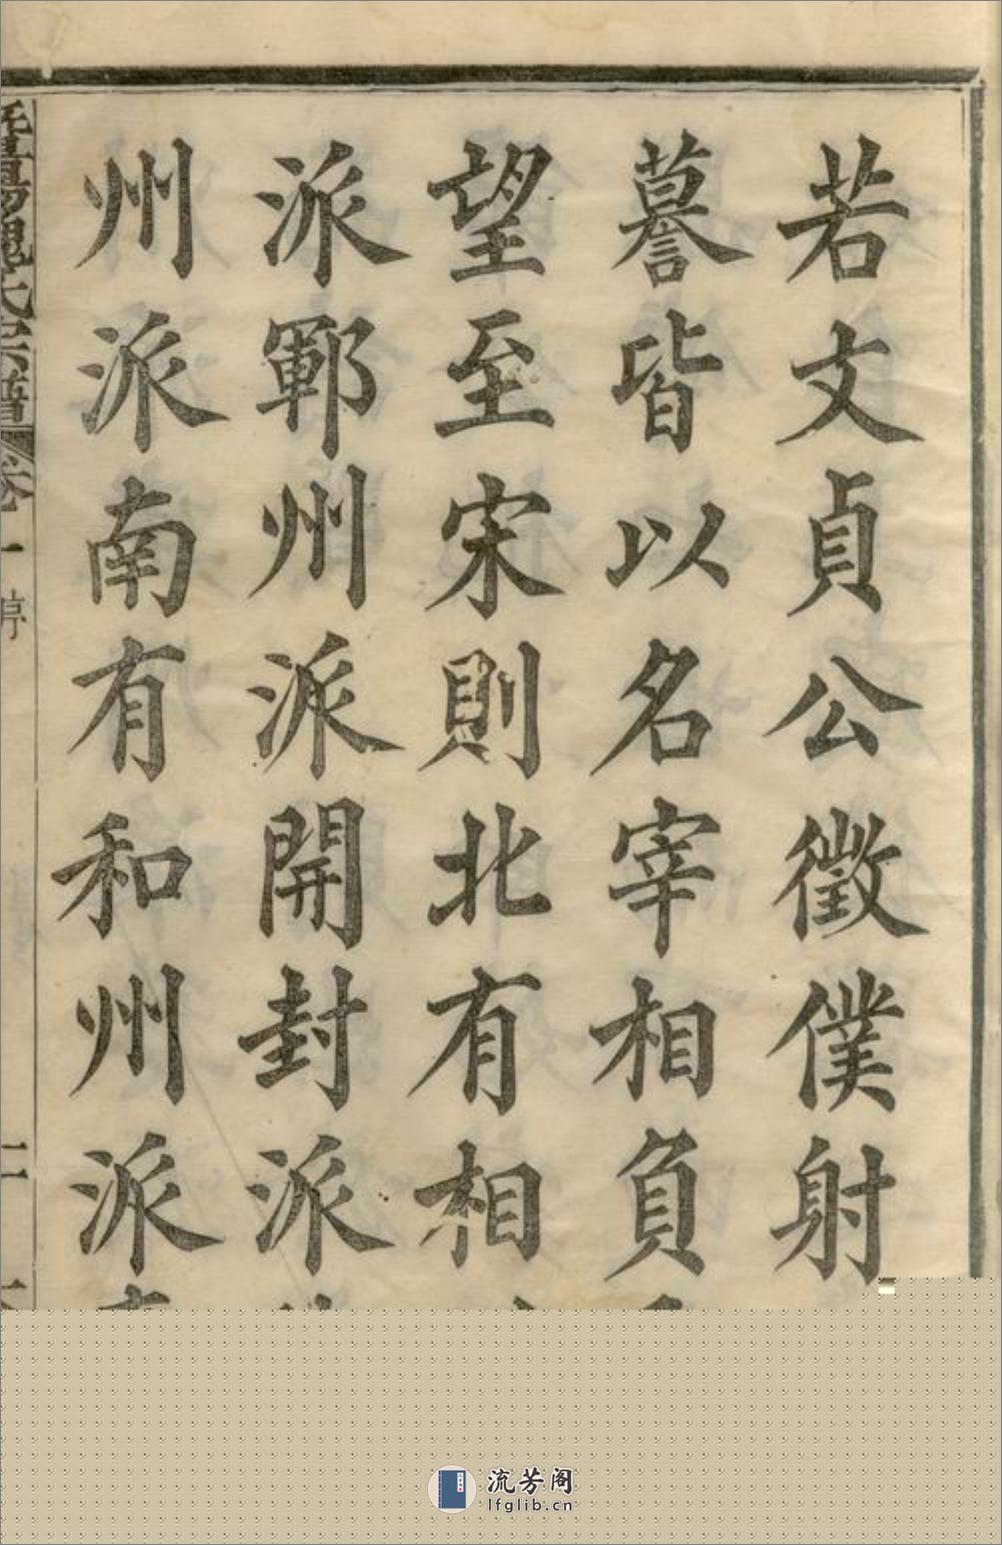 若文貞公徵僕射
謩皆以名宰相負
望至宋則北有相
派鄆州派開封派
州派南有和州派
魏氏宗譜 卷一
流芳阁
lfglib.cn